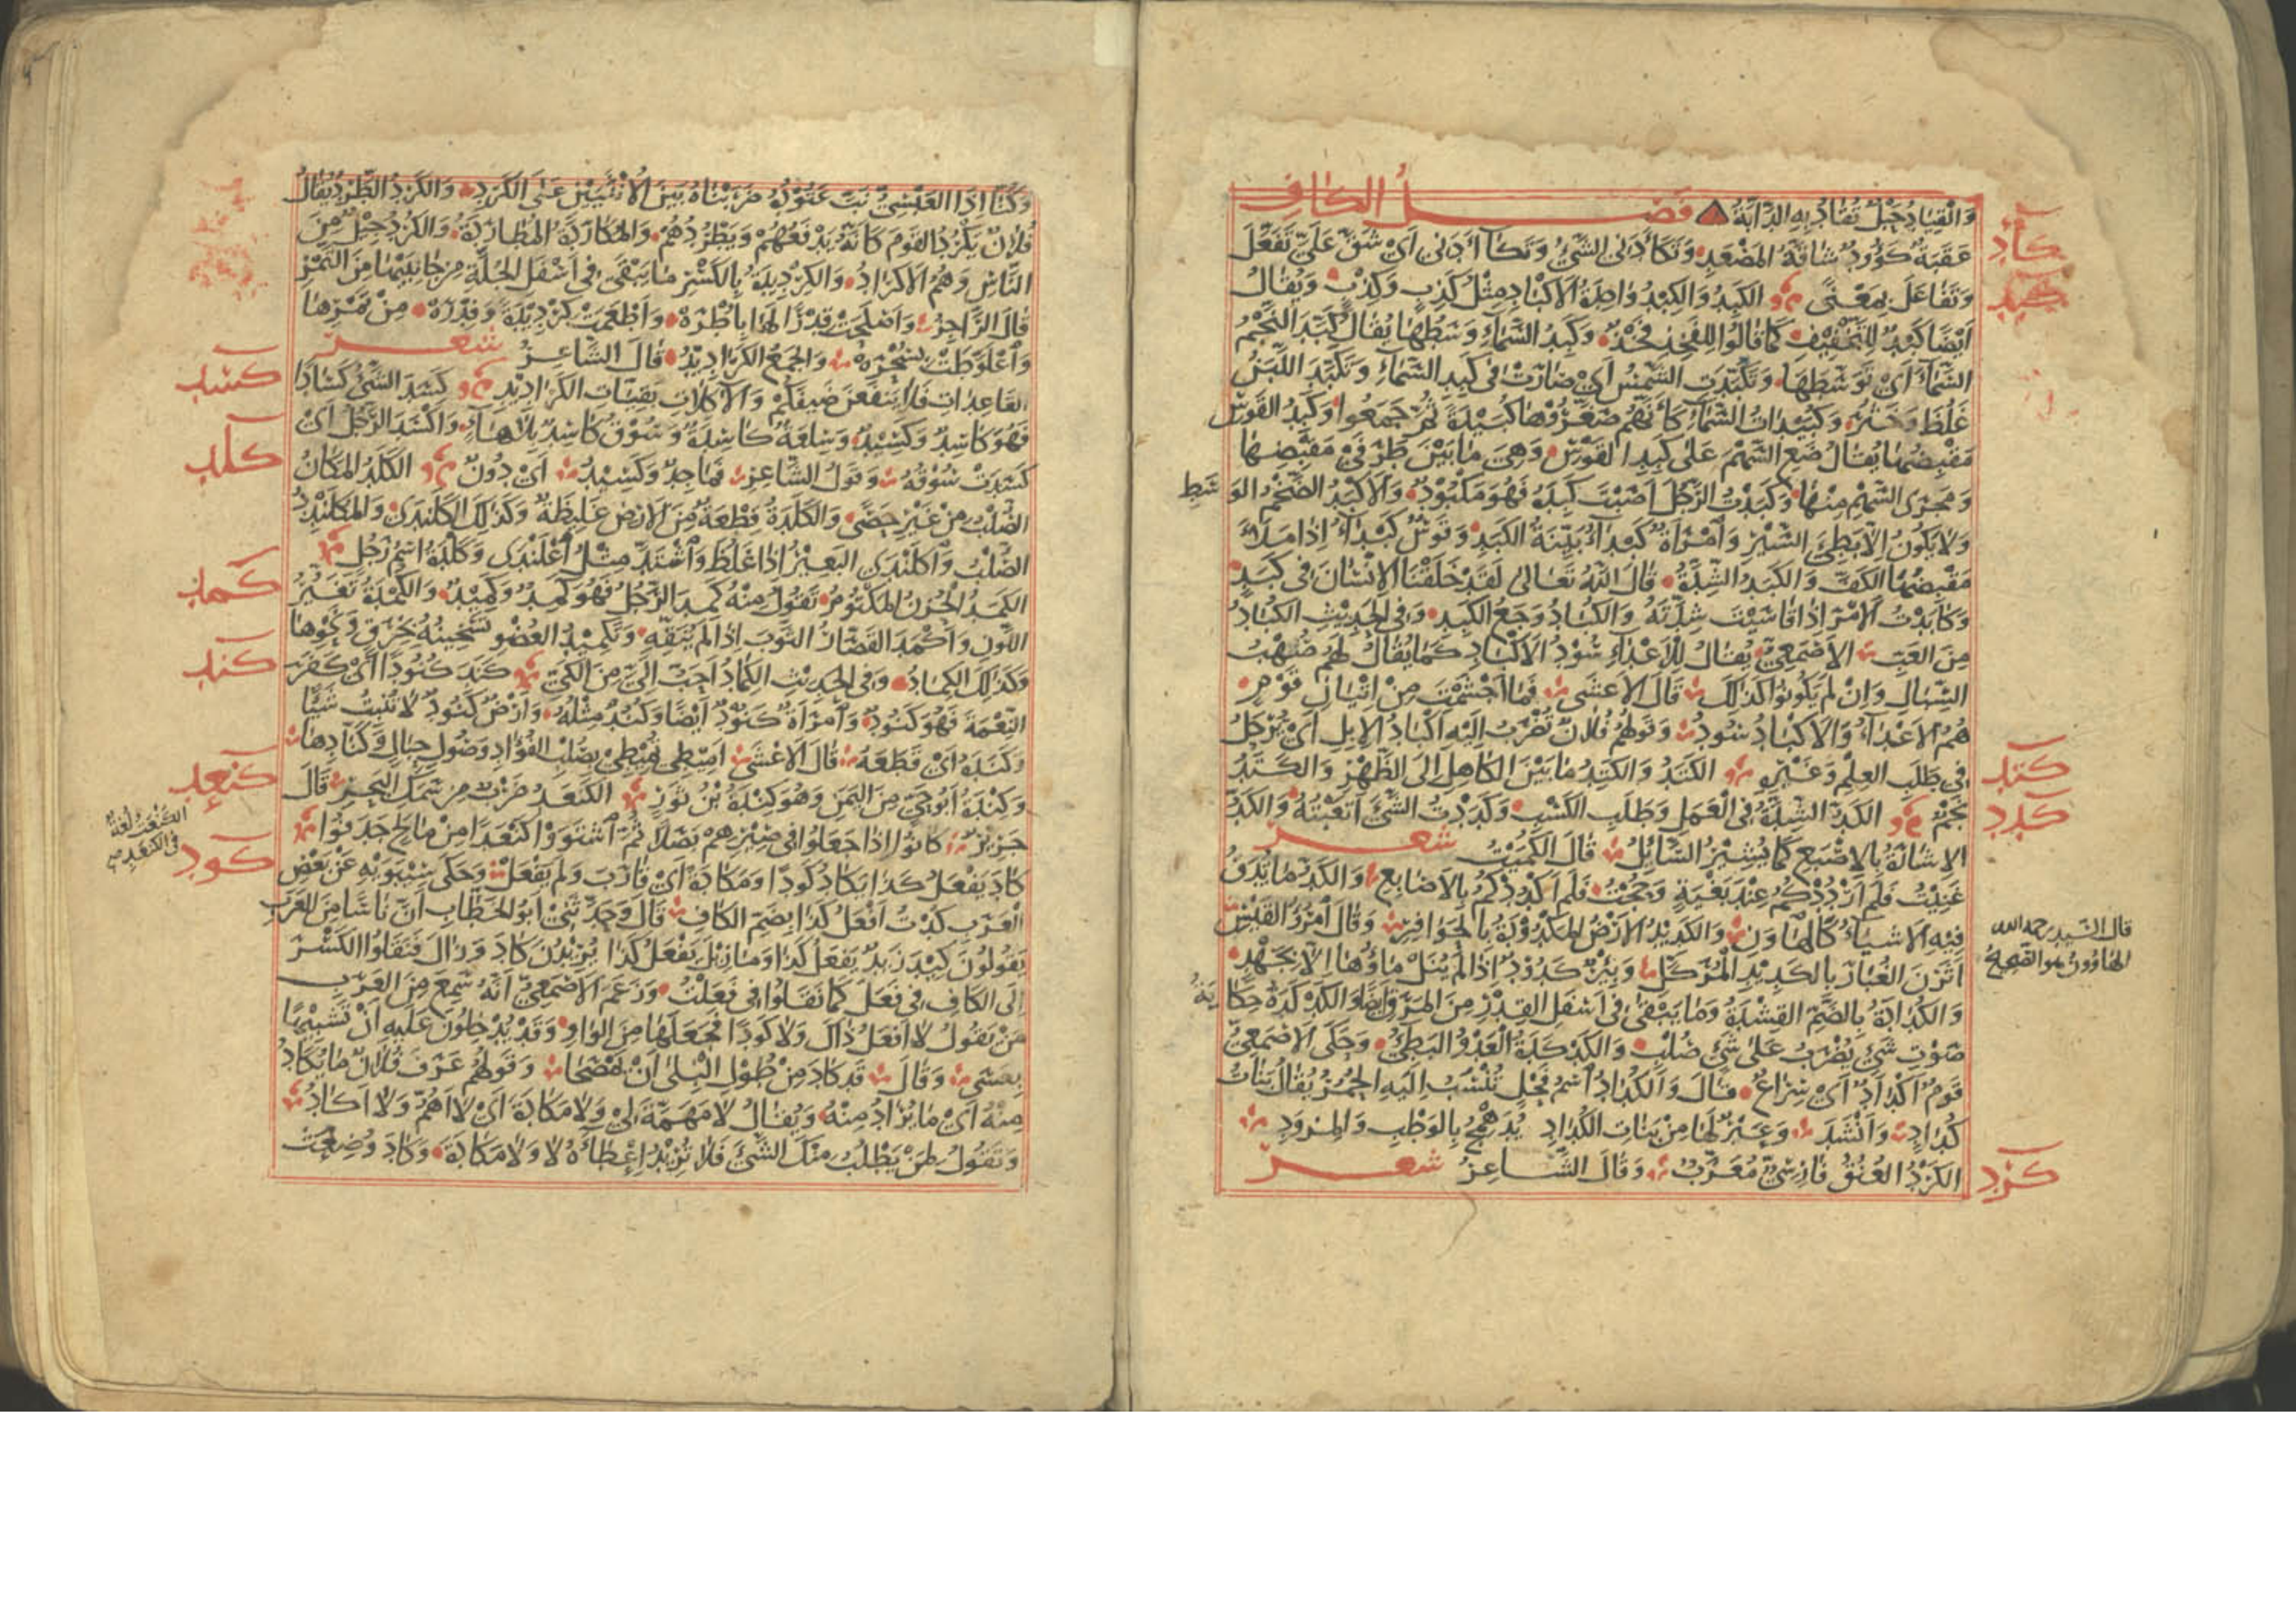 وَالْقِيَادُ حَبْلٌ تُقَادُ بِهِ الدَّابَّةُ فصل الكاف
كأد
عَقَبَةٌ كَؤُودٌ شَاقَّةُ المَصْعَدِ وَتَكَأَّدَنِي الشَّيْءُ وَتَكَاءَدَنِي اَيْ شَقَّ عَلَيَّ تَفَعَّلَ
كبد
وَتَفَاعَلَ بِمَعْنًى الكَبِدُ وَالكِبْدُ وَاحِدَةُ الاَكْبَادِ مِثْلُ كَذِبٍ وَكِذْبٍ وَيُقَالُ
اَيْضًا كَبْدٌ لِلتَّخْفِيفِ كَمَا قَالُوا لِلفَخِذِ فَخْذٌ وَكَبِدُ السَّمَاءِ وَسَطُهَا يُقَالُ كَبَّدَ النَّجْمُ
السَّمَاءَ اَيْ تَوَسَّطَهَا وَتَكَبَّدَتِ الشَّمْسُ اَيْ صَارَتْ فِي كَبِدِ السَّمَاءِ وَتَكَبَّدَ اللَّبَنُ
غَلُظَ وَخَثُرَ وَكُبَيْدَاتُ السَّمَاءِ كَاَنَّهُمْ صَغَّرُوْهَا كُبَيْدَةً ثُمَّ جَمَعُوا وَكَبِدُ القَوْسِ
مَقْبِضُهَا يُقَالُ ضَعِ السَّهْمَ عَلَى كَبِدِ القَوْسِ وَهِيَ مَا بَيْنَ طَرَفَيْ مَقْبِضِهَا
وَمَجْرَى السَّهْمِ مِنْهَا وَكَبَدْتُ الرَّجُلَ اَصَبْتُ كَبِدَهُ فَهُوَ مَكْبُوْدٌ وَالاَكْبَدُ الضَّخْمُ الوَسَطِ
وَلَا يَكُونُ اِلَّا بَطِيْءَ السَّيْرِ وَامْرَأَةٌ كَبْدَاءُ بَيِّنَةُ الكَبَدِ وَقَوْسٌ كَبْدَاءُ اِذَا مَلَأَ
مَقْبِضُهَا الكَفَّ وَالكَبَدُ الشِّدَّةُ قَالَ اللّٰهُ تَعَالَى لَقَدْ خَلَقْنَا الاِنْسَانَ فِي كَبَدٍ
وَكَابَدْتُ الاَمْرَ اِذَا قَاسَيْتَ شِدَّتَهُ وَالكُبَادُ وَجَعُ الكَبِدِ وَفِي الحَدِيْثِ الكُبَادُ
مِنَ العَبِّ الاَصْمَعِيُّ يُقَالُ لِلْاَعْدَاءِ سُوْدُ الاَكْبَادِ كَمَا يُقَالُ لَهُمْ صُهْبُ
السِّبَالِ وَاِنْ لَمْ يَكُونُوا كَذٰلِكَ قَالَ الاَعْشَى فَمَا اُجْشِمْتِ مِنْ اِتْيَانِ قَوْمٍ
هُمُ الاَعْدَاءُ وَالاَكْبَادُ سُودُ وَقَولُهُمْ فُلَانٌ تُضْرَبُ اِلَيْهِ اَكْبَادُ الاِبِلِ اَيْ يُرْحَلُ
كتد
فِي طَلَبِ العِلْمِ وَغَيْرِهِ الكَتَدُ وَالكَتِدُ مَا بَيْنَ الكَاهِلِ اِلَى الظَّهْرِ وَالكَتَدُ
كدد
نَجْمٌ الكَدُّ الشِّدَّةُ فِي العَمَلِ وَطَلَبِ الكَسْبِ وَكَدَدْتُ الشَّيْءَ اَتْعَبْتُهُ وَالكَدُّ
الاِشَارَةُ بِالاِصْبَعِ كَمَا يُشِيْرُ السَّائِلُ قَالَ الكُمَيْتُ شعر
غَنِيْتُ فَلَمْ اَرْدُدْكُمُ عِنْدَ بُغْيَةٍ وَحُجْتُ فَلَمْ اَكْدُدْكُمُ بِالاَصَابِعِ وَالكَدُّ مَا يُدَقُّ
فِيْهِ الاَشْيَاءُ كَالهَاوَنِ وَالكَدِيْدُ الاَرْضُ المَكْدُوْدَةُ بِالحَوَافِرِ وَقَالَ امْرُؤُ القَيْسِ
قال السيد رحمه الله
الهاوون هو الصحيح
اَثَرْنَ الغُبَارَ بِالكَدِيْدِ المُرَكَّلِ وَبِئْرٌ كَدُوْدٌ اِذَا لَمْ يُنَلْ مَاؤُهَا اِلَّا بِجَهْدٍ
وَالكُدَادَةُ بِالضَّمِّ القِشْدَةُ وَمَا يَبْقَى فِي اَسْفَلِ القِدْرِ مِنَ المَرَقِ اَيْضًا وَالكَدْكَدَةُ حِكَايَةُ
صَوْتِ شَيْءٍ يُضْرَبُ عَلَى شَيْءٍ صُلْبٍ وَالكَدْكَدَةُ العَدْوُ البَطِيْءُ وَحَكَى الاَصْمَعِيُّ
قَوْمٌ اَكْدَادٌ اَيْ سِرَاعٌ قَالَ وَالكُدَادُ اسْمُ فَحْلٍ تُنْسَبُ اِلَيْهِ الحُمُرُ يُقَالُ بَنَاتُ
كُدَادٍ وَاَنْشَدَ وَعَيْرٌ لَهَا مِنْ بَنَاتِ الكُدَادِ يُدَهْمِجُ بِالوَطْبِ وَالمِزْوَدِ
كرد
الكَرْدُ العُنُقُ فَارِسِيٌّ مُعَرَّبٌ وَقَالَ الشَّاعِرُ شعر
وَكُنَّا اِذَا العَبْسِيُّ نَبَّ عَتُوْدُهُ ضَرَبْنَاهُ بَيْنَ الاُنْثَيَيْنِ عَلَى الكَرْدِ وَالكَرْدُ الطَّرْدُ يُقَالُ
فُلَانٌ يَكْرُدُ القَوْمَ كَاَنَّهُ يَدْفَعُهُمْ وَيَطْرُدُهُمْ وَالمُكَارَدَةُ المُطَارَدَةُ وَالكُرْدُ جِيْلٌ مِنَ
النَّاسِ وَهُمُ الاَكْرَادُ وَالكِرْدِيدَةُ بِالكَسْرِ مَا يَبْقَى فِي اَسْفَلِ الجُلَّةِ مِنْ جَانِبَيْهَا مِنَ التَّمْرِ
قَالَ الرَّاجِزُ وَاَصْلَحَتْ قِدْرًا لَهَا بِاُطْرَهْ وَاَطْعَمَتْ كِرْدِيْدَةً وَفِدْرَهْ مِنْ تَمْرِهَا
وَاعْلَوَّطَتْ بِسُحْرَهْ وَالجَمْعُ الكَرَادِيْدُ قَالَ الشَّاعِرُ شعر
كسد
القَاعِدَاتُ فَلَا يَنْفَعْنَ ضَيْفَكُمُ وَالآكِلَاتُ بَقِيَّاتِ الكَرَادِيْدِ كَسَدَ الشَّيْءُ كَسَادًا
فَهُوَ كَاسِدٌ وَكَسِيْدٌ وَسِلْعَةٌ كَاسِدَةٌ وَسُوْقٌ كَاسِدٌ بِلَا هَاءٍ وَاَكْسَدَ الرَّجُلُ اَيْ
كلد
كَسَدَتْ سُوْقُهُ وَقَوْلُ الشَّاعِرِ فَمَاجِدٌ وَكَسِيْدُ اَيْ دُونٌ الكَلَدُ المَكَانُ
الصُّلْبُ مِنْ غَيْرِ حَصًى وَالكَلَدَةُ قِطْعَةٌ مِنَ الاَرْضِ غَلِيْظَةٌ وَكَذٰلِكَ الكَلَنْدَى وَالمُكْلَنْدِدُ
الصُّلْبُ وَاكْلَنْدَى البَعِيْرُ اِذَا غَلُظَ وَاشْتَدَّ مِثْلُ اعْلَنْدَى وَكَلَدَةُ اسْمُ رَجُلٍ
كمد
الكَمَدُ الحُزْنُ المَكْتُومُ تَقُولُ مِنْهُ كَمِدَ الرَّجُلُ فَهُوَ كَمِدٌ وَكَمِيْدٌ وَالكُمْدَةُ تَغَيُّرُ
اللَّوْنِ وَاَكْمَدَ القَصَّارُ الثَّوْبَ اِذَا لَمْ يُنَقِّهِ وَتَكْمِيْدُ العُضْوِ تَسْخِينُهُ بِخِرَقٍ وَنَحْوِهَا
كند
وَكَذٰلِكَ الكِمَادُ وَفِي الحَدِيْثِ الكِمَادُ اَحَبُّ اِلَيَّ مِنَ الكَيِّ كَنَدَ كُنُوْدًا اَيْ كَفَرَ
النِّعْمَةَ فَهُوَ كَنُوْدٌ وَامْرَأَةٌ كَنُوْدٌ اَيْضًا وَكُنُدٌ مِثْلُهُ وَاَرْضٌ كَنُوْدٌ لَا تُنْبِتُ شَيْئًا
وَكَنَدَهُ اَيْ قَطَعَهُ قَالَ الاَعْشَى اَمِيْطِي تُمِيْطِيْ بِصُلْبِ الفُؤَادِ وَصُولِ حِبَالٍ وَكَنَّادِهَا
كنعد
وَكِنْدَةُ اَبُو حَيٍّ مِنَ اليَمَنِ وَهُوَ كِنْدَةُ بْنُ ثَوْرٍ الكَنْعَدُ ضَرْبٌ مِنْ سَمَكِ البَحْرِ قَالَ
الكنعت لغة
في الكنعد
جَرِيْرٌ كَانُوْا اِذَا جَعَلُوا فِي صِيْرِهِمْ بَصَلًا ثُمَّ اشْتَوَوْا كَنْعَدًا مِنْ مَالِحٍ جَدَفُوا
كود
كَادَ يَفْعَلُ كَذَا يَكَادُ كَوْدًا وَمَكَادَةً اَيْ قَارَبَ وَلَمْ يَفْعَلْ وَحَكَى سِيْبَوَيْهِ عَنْ بَعْضِ
العَرَبِ كُدْتُ اَفْعَلُ كَذَا بِضَمِّ الكَافِ قَالَ وَحَدَّثَنِيْ اَبُو الخَطَّابِ اَنَّ نَاسًا مِنَ العَرَبِ
يَقُولُونَ كِيْدَ زَيْدٌ يَفْعَلُ كَذَا وَمَا زِيْلَ يَفْعَلُ كَذَا يُرِيْدُونَ كَادَ وَزَالَ فَنَقَلُوا الكَسْرَ
اِلَى الكَافِ فِي فَعِلَ كَمَا نَقَلُوا فِي فَعِلْتُ وَزَعَمَ الاَصْمَعِيُّ اَنَّهُ سَمِعَ مِنَ العَرَبِ
مَنْ يَقُولُ لَا اَفْعَلُ ذَاكَ وَلَا كَوْدًا فَجَعَلَهَا مِنَ الوَاوِ وَقَدْ يُدْخِلُونَ عَلَيْهِ اَنْ تَشْبِيْهًا
بِعَسَى وَقَالَ قَدْ كَادَ مِنْ طُوْلِ البِلَى اَنْ يَمْصَحَا وَقَوْلُهُمْ عَرَفَ فُلَانٌ مَا يُكَادُ
مِنْهُ اَيْ مَا يُرَادُ مِنْهُ وَيُقَالُ لَا مَهَمَّةَ لِيْ وَلَا مَكَادَةَ اَيْ لَا اَهُمُّ وَلَا اَكَادُ
وَتَقُولُ لِمَنْ يَطْلُبُ مِنْكَ الشَّيْءَ فَلَا تُرِيْدُ اِعْطَاءَهُ لَا وَلَا مَكَادَةَ وَكَادَ وُضِعَتْ